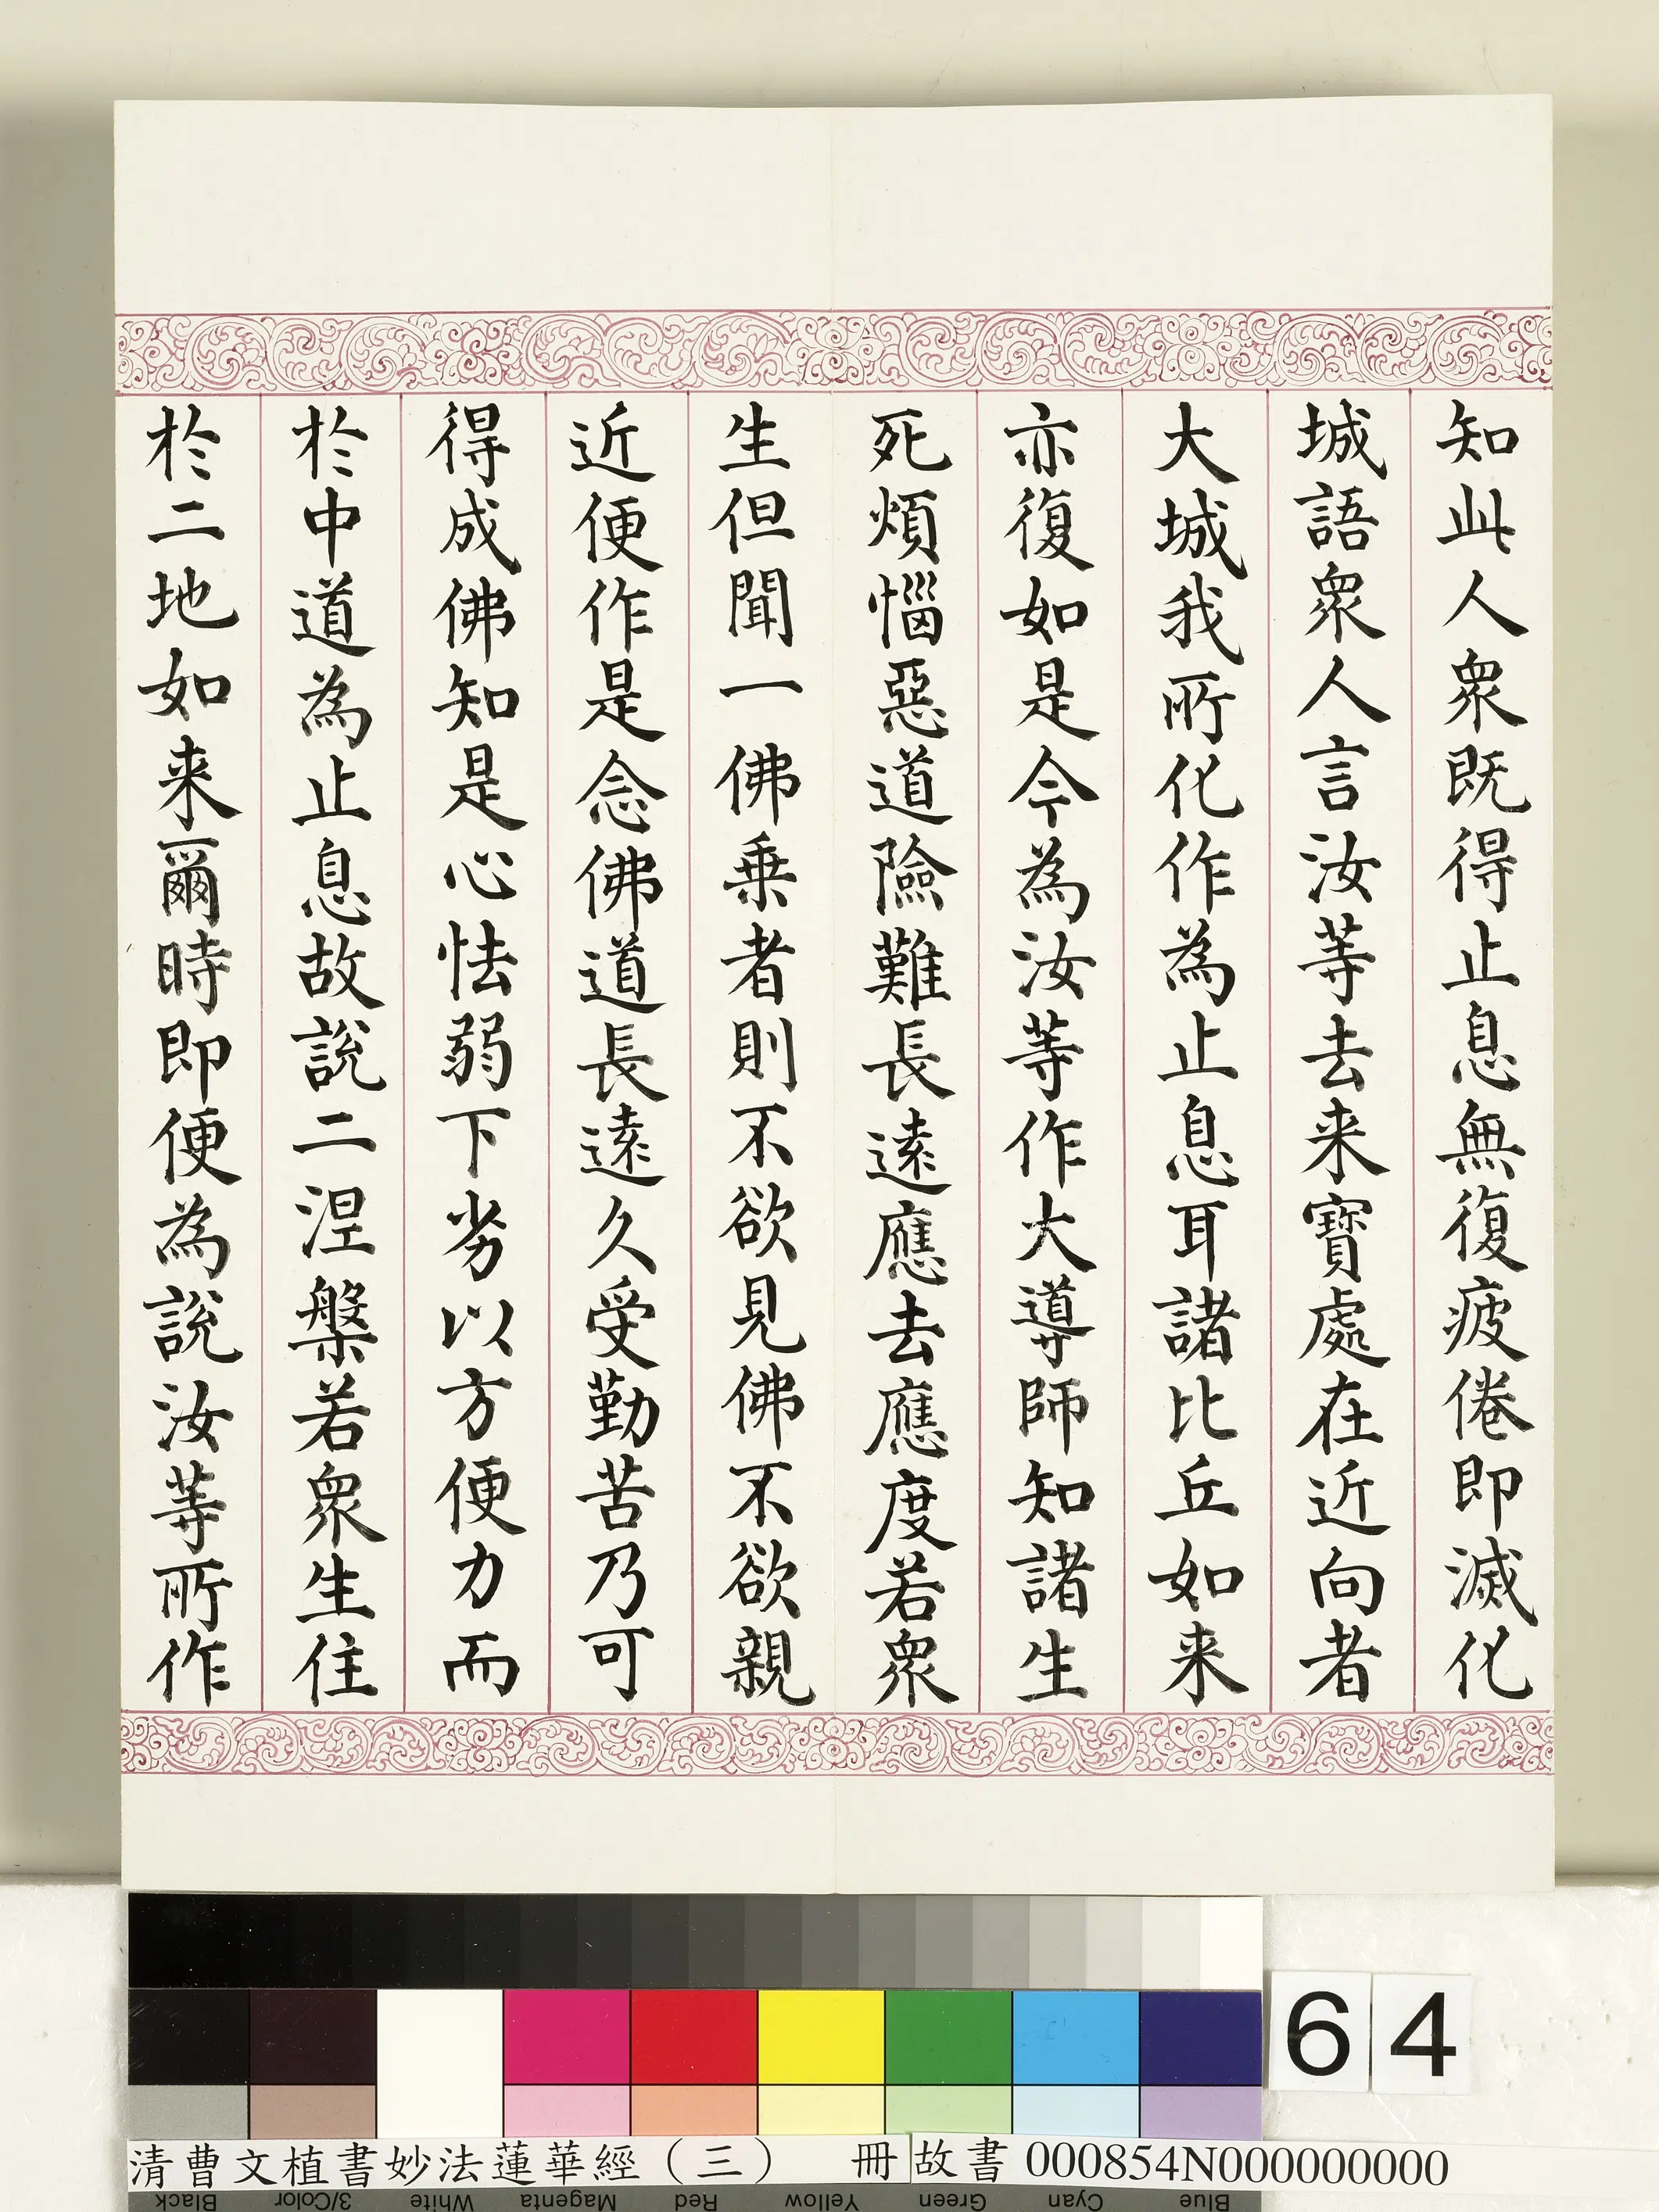 知此人衆既得止息無復疲倦即滅化
城語衆人言汝等去来寶處在近向者
大城我所化作為止息耳諸比丘如来
亦復如是今為汝等作大導師知諸生
死煩惱惡道險難長遠應去應度若衆
生但聞一佛乗者則不欲見佛不欲親
近便作是念佛道長遠久受勤苦乃可
得成佛知是心怯弱下劣以方便力而
於中道為止息故說二涅槃若衆生住
於二地如来爾時即便為說汝等所作
64
清曹文植書妙法蓮華經（三） 冊 故書 000854N000000000
Black 3/Color White Magenta Red Yellow Green Cyan Blue